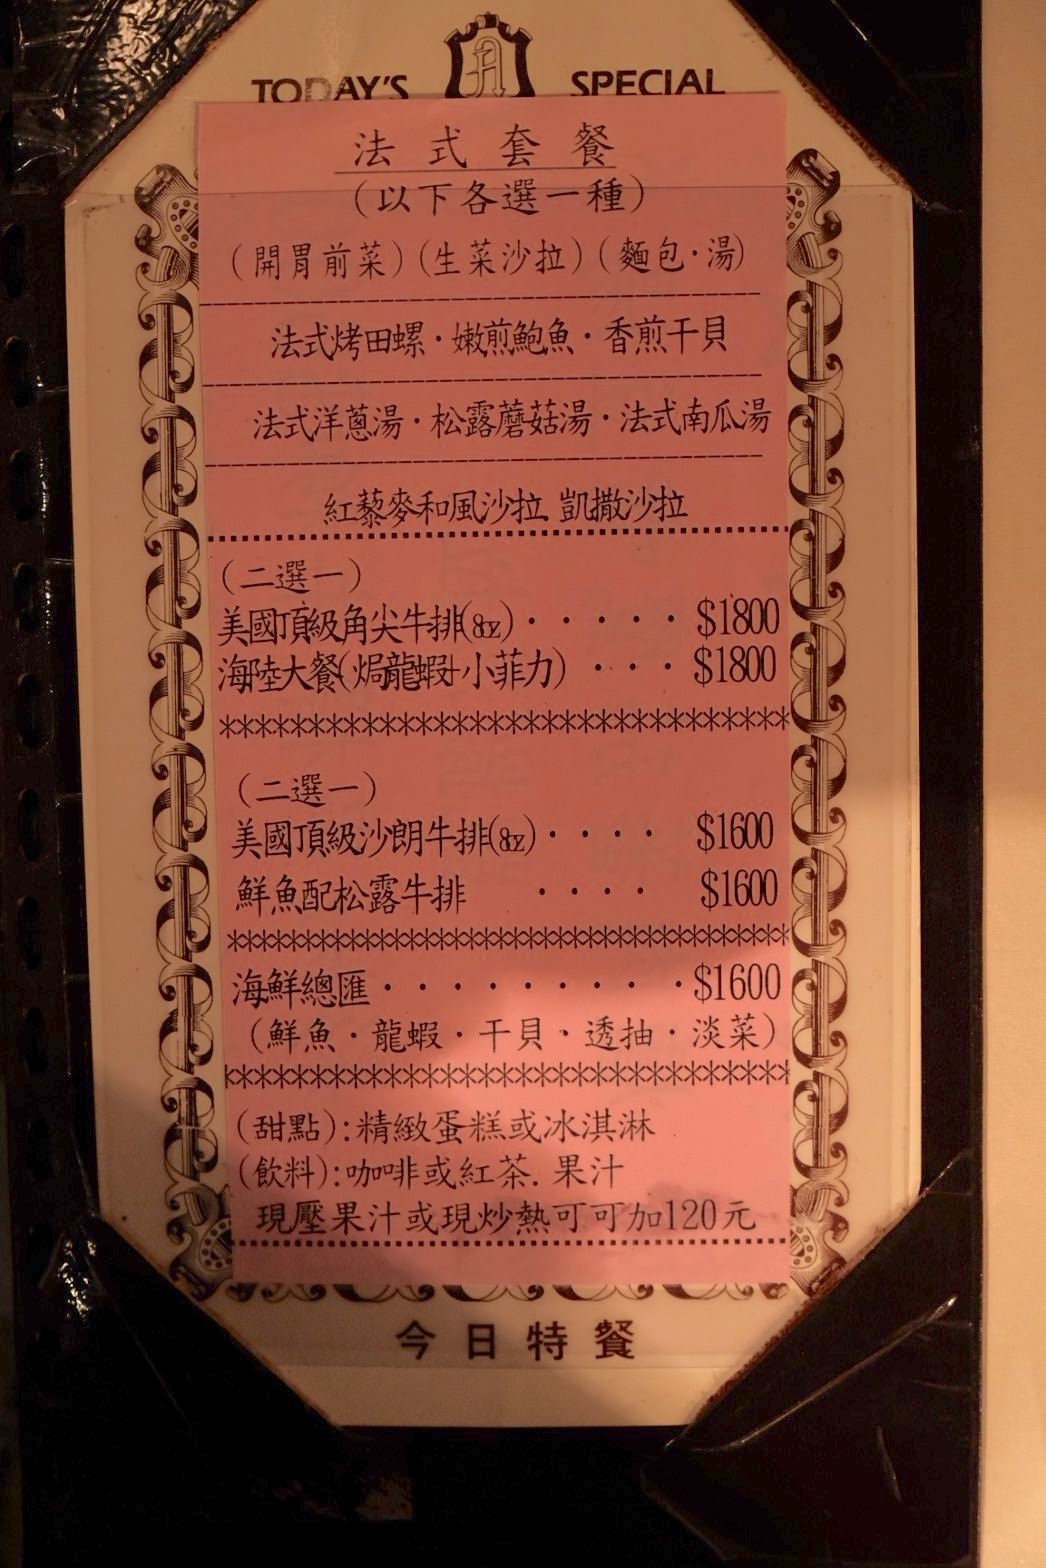 TODAY'S SPECIAL
法式套餐
(以下各選一種)
(開胃前菜)(生菜沙拉)(麵包·湯)
法式烤田螺·嫩煎鮑魚·香煎干貝
法式洋蔥湯·松露蘑菇湯·法式南瓜湯
紅藜麥和風沙拉 凱撒沙拉
(二選一)
美國頂級角尖牛排(8oz)·····$1800
海陸大餐(焗龍蝦+小菲力)····$1800
**********************************
(二選一)
美國頂級沙朗牛排(8oz)····$1600
鮮魚配松露牛排 ····$1600
**********************************
海鮮總匯·········$1600
(鮮魚·龍蝦·干貝·透抽·淡菜)
**********************************
(甜點):精緻蛋糕或冰淇淋
(飲料):咖啡或紅茶.果汁
現壓果汁或現炒熱可可加120元
今日特餐